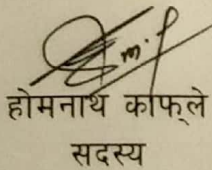 होमनाथ काफ्‌ले
सदस्य